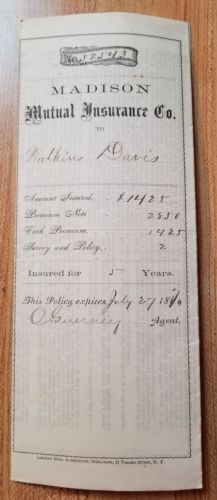 No. 52543
MADISON
Mutual Insurance Co.
TO
Watkins Davis
Amount Insured, - $1425
Premium Note - 2850
Cash Premium, - 1425
Survey and Policy, - 2
Insured for 5 Years.
This Policy expires July 27 1870
Agent.
Street, N. Y.